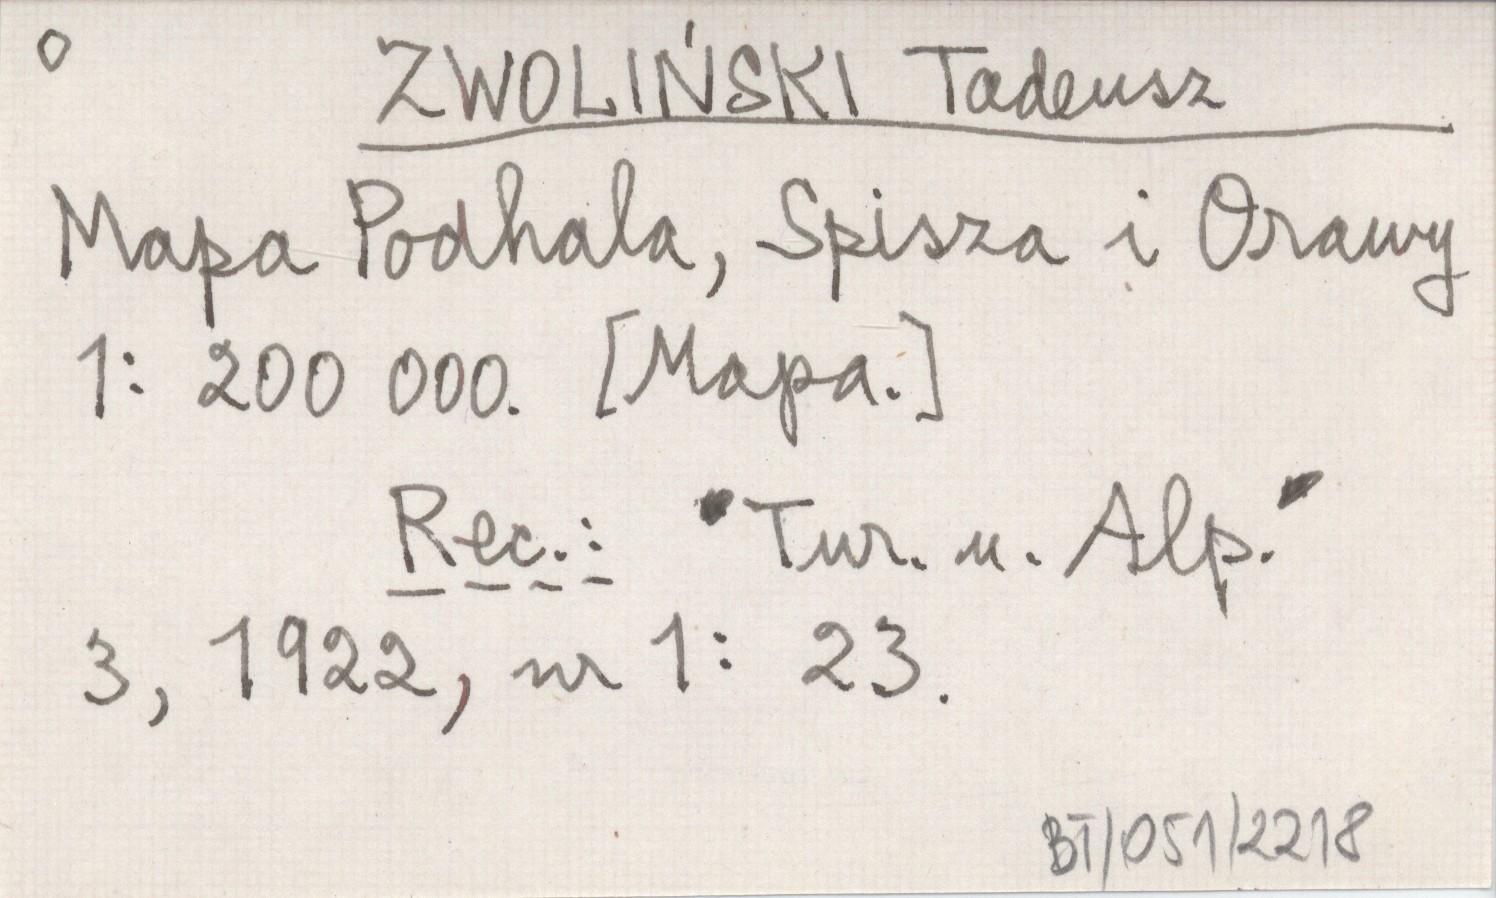 o ZWOLIŃSKI Tadeusz
Mapa Podhala, Spisza i Orawy
1: 200 000. [Mapa.]
Rec.: "Tur. u. Alp."
3, 1922, nr 1: 23.
BT/051/2218